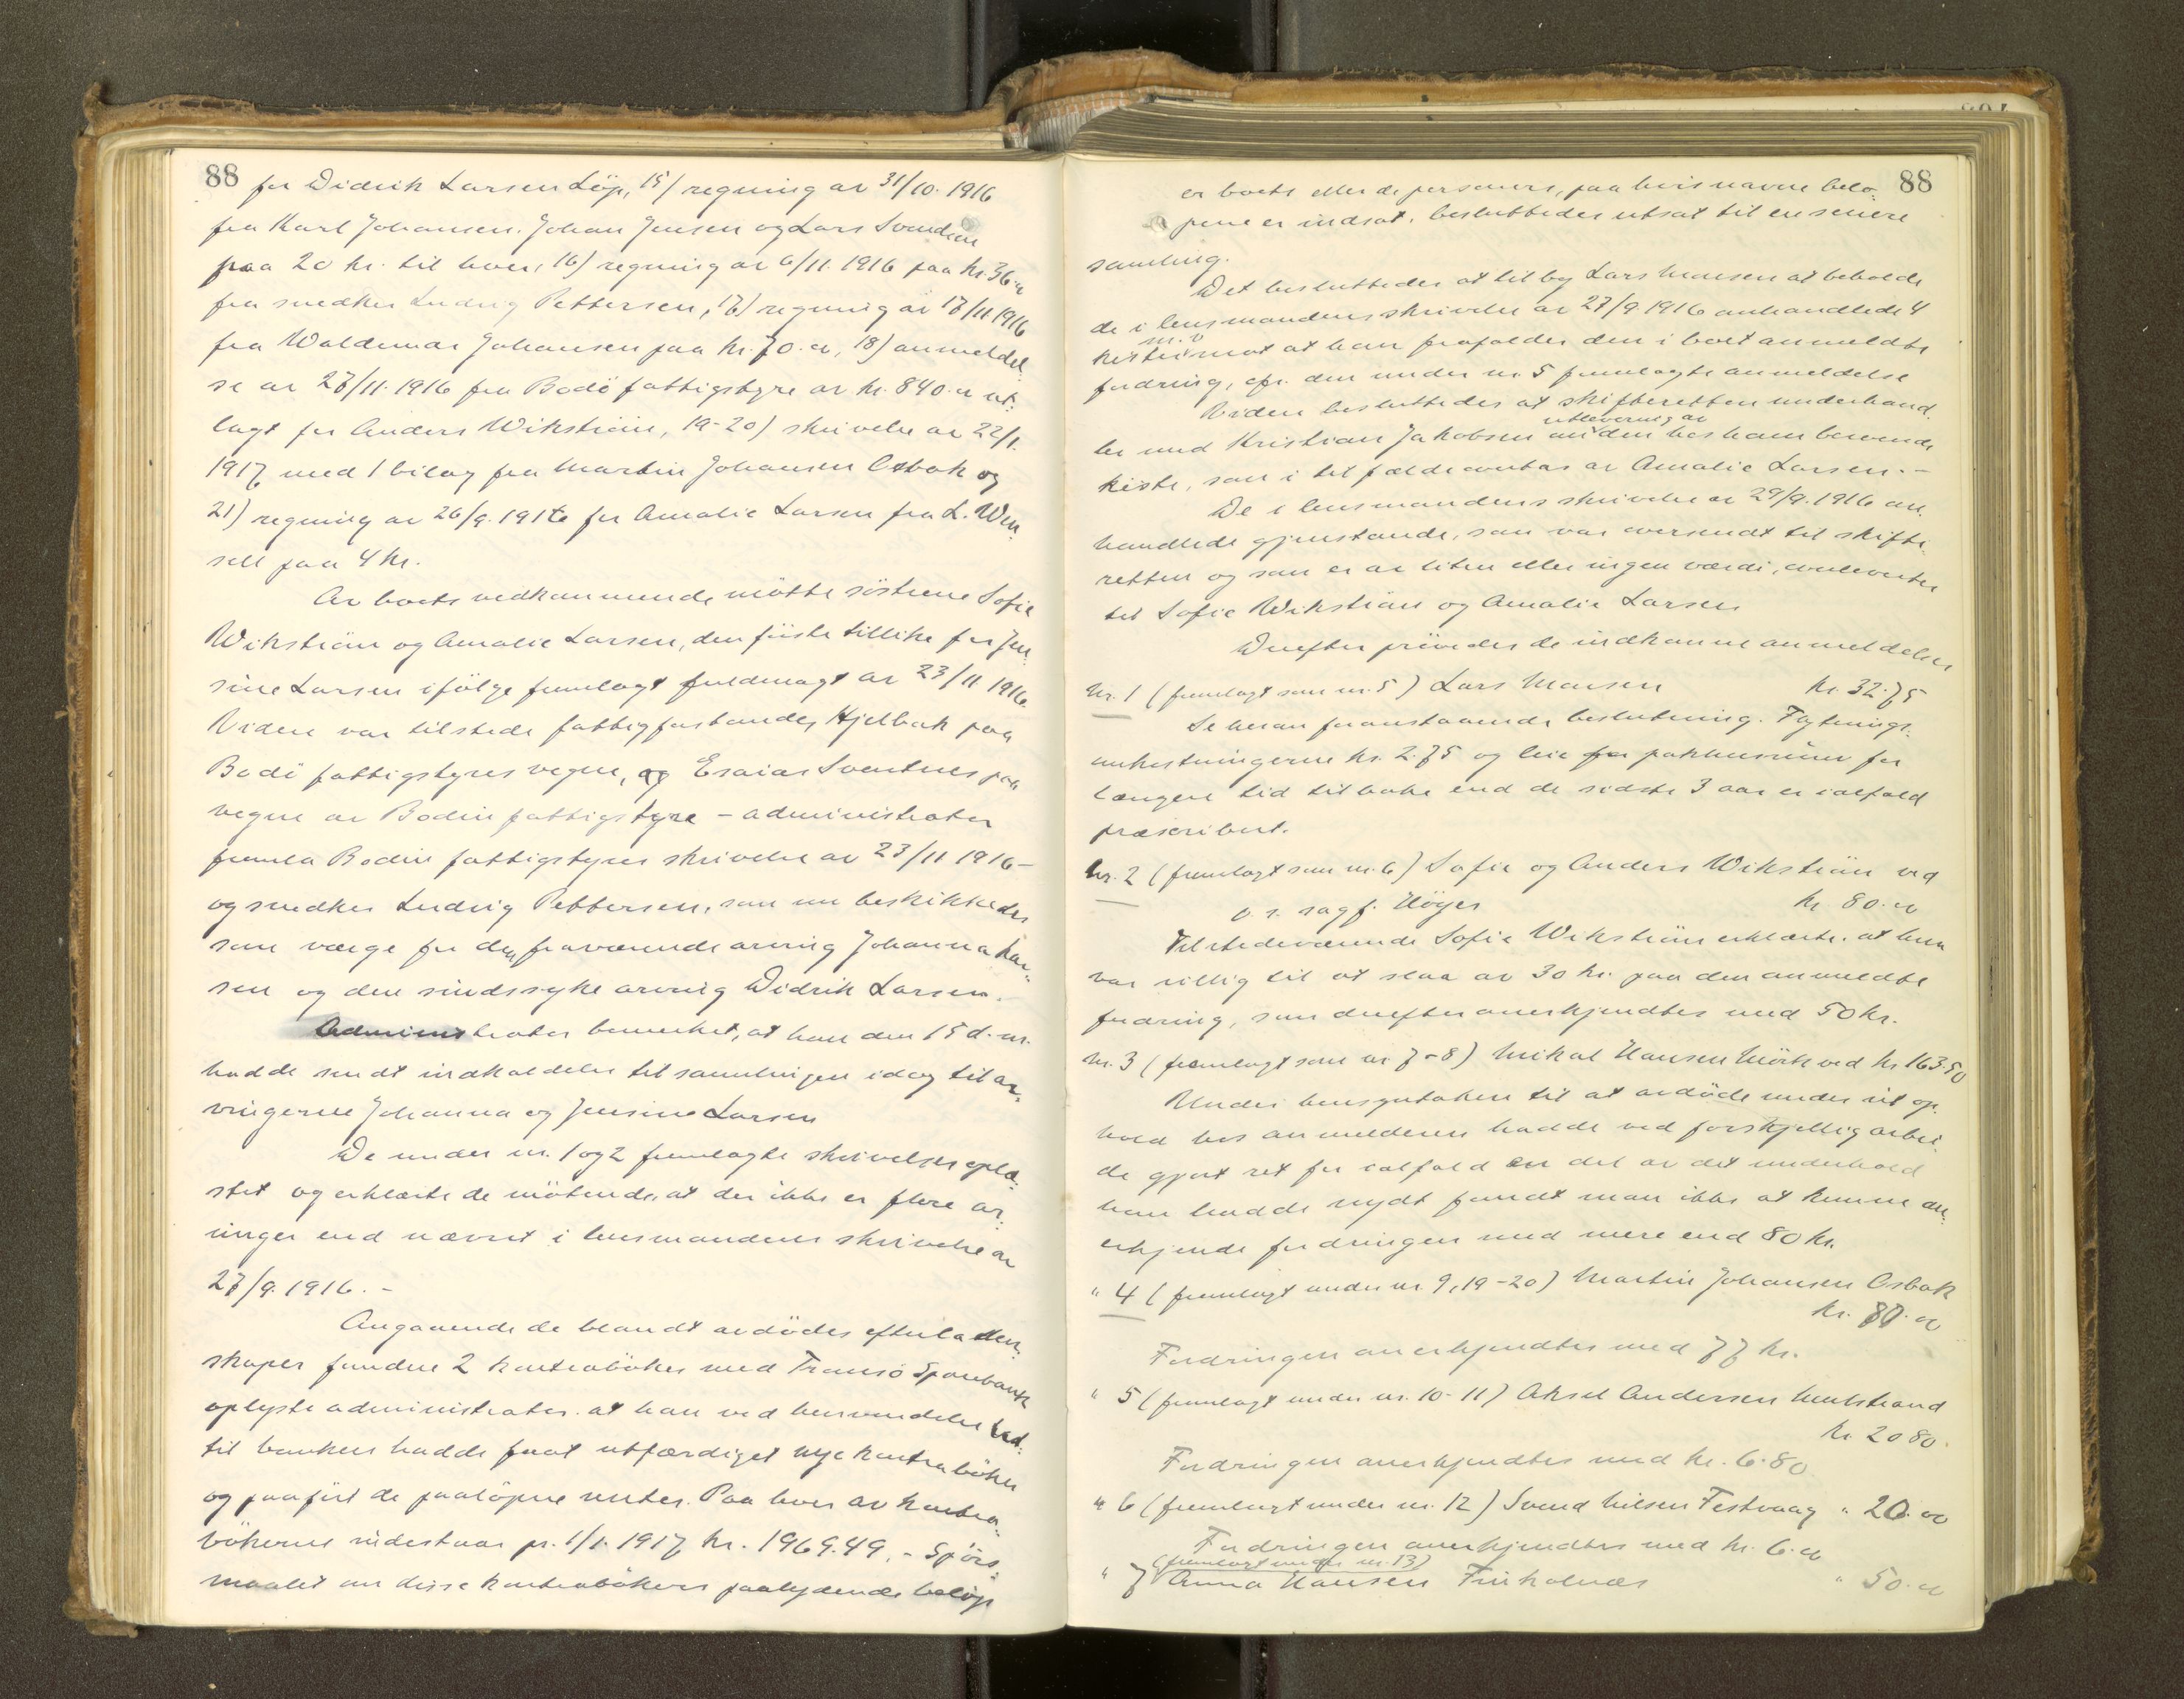 88
for Didrik Larsen Løp, 15) regning av 31/10. 1916
fra Karl Johansen, Johan Jensen og Lars Svendsen
paa 20 kr. til hver, 16) regning av 6/11. 1916 paa kr. 36.00
fra snedker Ludvig Pettersen, 17) regning av 17/11 1916
fra Waldemar Johansen paa kr. 70.00, 18) anmeldel-
se av 27/11. 1916 fra Bodø fattigstyre av kr. 840.00 ut-
lagt for Anders Wikström, 19-20) skrivelse av 22/1.
1917 med 1 bilag fra Martin Johansen Osbak og
21) regning av 26/9. 1916 for Amalie Larsen fra L. Wen-
sell paa 4 kr.
Av boets vedkommende møtte søstrene Sofie
Wikström og Amalie Larsen, den første tillike for Jen-
sine Larsen ifølge fremlagt fuldmagt av 23/11 1916.
Videre var tilstede fattigforstander Hjelbak paa
Bodø fattigstyres vegne, og Esaias Svartnes paa
vegne av Bodin fattigstyre - administrator
fremla Bodin fattigstyres skrivelse av 23/11 1916 -
og snedker Ludvig Pettersen, som nu beskikkedes
som værge for den fraværende arving Johanna Lar-
sen og den sindssyke arving Didrik Larsen.
Administrator bemerket, at han den 15 d. m.
hadde sendt indkaldelse til samlingen idag til ar-
vingerne Johanna og Jensine Larsen
De under nr. 1 og 2 fremlagte skrivelser oplæ-
stes og erklærte de møtende, at der ikke er flere ar-
vinger end nævnt i lensmandens skrivelse av
27/9. 1916. -
Angaaende de blandt avdødes efterladen-
skaper fundne 2 kontrabøker med Tromsø Sparebank
oplyste administrator, at han ved henvendelse
til banken hadde faat utfærdiget nye kontrabøker
og paaført de paaløpne renter. Paa hver av kontra-
bøkerne indestaar pr. 1/1. 1917 kr. 1969.49. - Spørs-
maalet om disse kontrabøkers paalydende beløp
88
er boets eller de personers, paa hvis navne belø-
pene er indsat, besluttedes utsat til en senere
samling.
Det besluttedes at tilby Lars Monsen at beholde
de i lensmandens skrivelse av 27/9. 1916 omhandlede 4
kister m. v. mot at han frafalder den i boet anmeldte
fordring, cfr. den under nr. 5 fremlagte anmeldelse
Videre besluttedes at skifteretten underhand-
ler med Kristian Jakobsen om utlevering av den hos ham beroende
kiste, som i tilfælde overtas av Amalie Larsen. -
De i lensmandens skrivelse av 29/9. 1916 om-
handlede gjenstande, som var oversendt til skifte-
retten og som er av liten eller ingen værdi, overleverte
til Sofie Wikström og Amalie Larsen
Derefter prøvedes de indkomne anmeldelser
Nr. 1 (fremlagt som nr. 5) Lars Monsen kr. 32.75
Se herom foranstaaende beslutning. Flytnings-
omkostningerne kr. 2.75 og leie for pakhusrum for
længere tid tilbake end de sidste 3 aar er ialfald
præscribert.
Nr. 2 (fremlagt som nr. 6) Sofie og Anders Wikström ved
o. r. sagf. Høyer kr 80.00
Tilstedeværende Sofie Wikström erklærte, at hun
var villig til at slaa av 30 kr. paa den anmeldte
fordring, som derefter anerkjendtes med 50 kr.
Nr. 3 (fremlagt som nr. 7-8) Mikal Hansen Mørk ved kr 163.50
Under hensyntaken til at avdøde under sit op-
hold hos anmelderen hadde ved forskjellig arbei-
de gjort ret for ialfald en del av det underhold
han hadde nydt fandt man ikke at kunne an-
erkjende fordringen med mere end 80 kr.
" 4 (fremlagt under nr. 9, 19-20) Martin Johansen Osbak
kr. 80.00
Fordringen anerkjendtes med 77 kr.
" 5 (fremlagt under nr. 10-11) Aksel Andersen Mulstrand
kr. 20 80.
Fordringen anerkjendtes med kr. 6.80
" 6 (fremlagt under nr. 12) Svend Nilsen Festvaag " 20.00
Fordringen anerkjendtes med kr. 6.00
(fremlagt under nr. 13)
" 7 Anna Hansen Finkolnes " 50.00